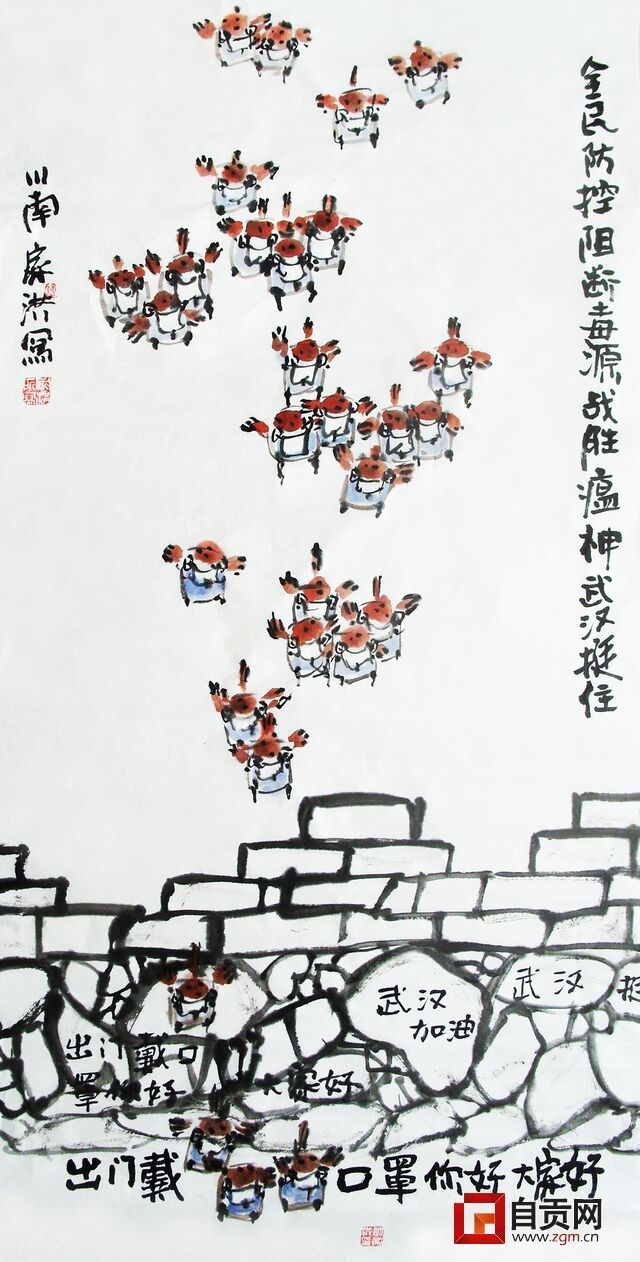 全民防控阻断毒源战胜瘟神武汉挺住
川南家洪寫
武汉
加油
武汉
挺
出门戴口
罩你好
大家好
出门戴口罩你好大家好
自贡网
www.zgm.cn